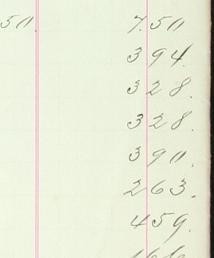 50. 7.50
394.
328.
328.
390.
263.
459.